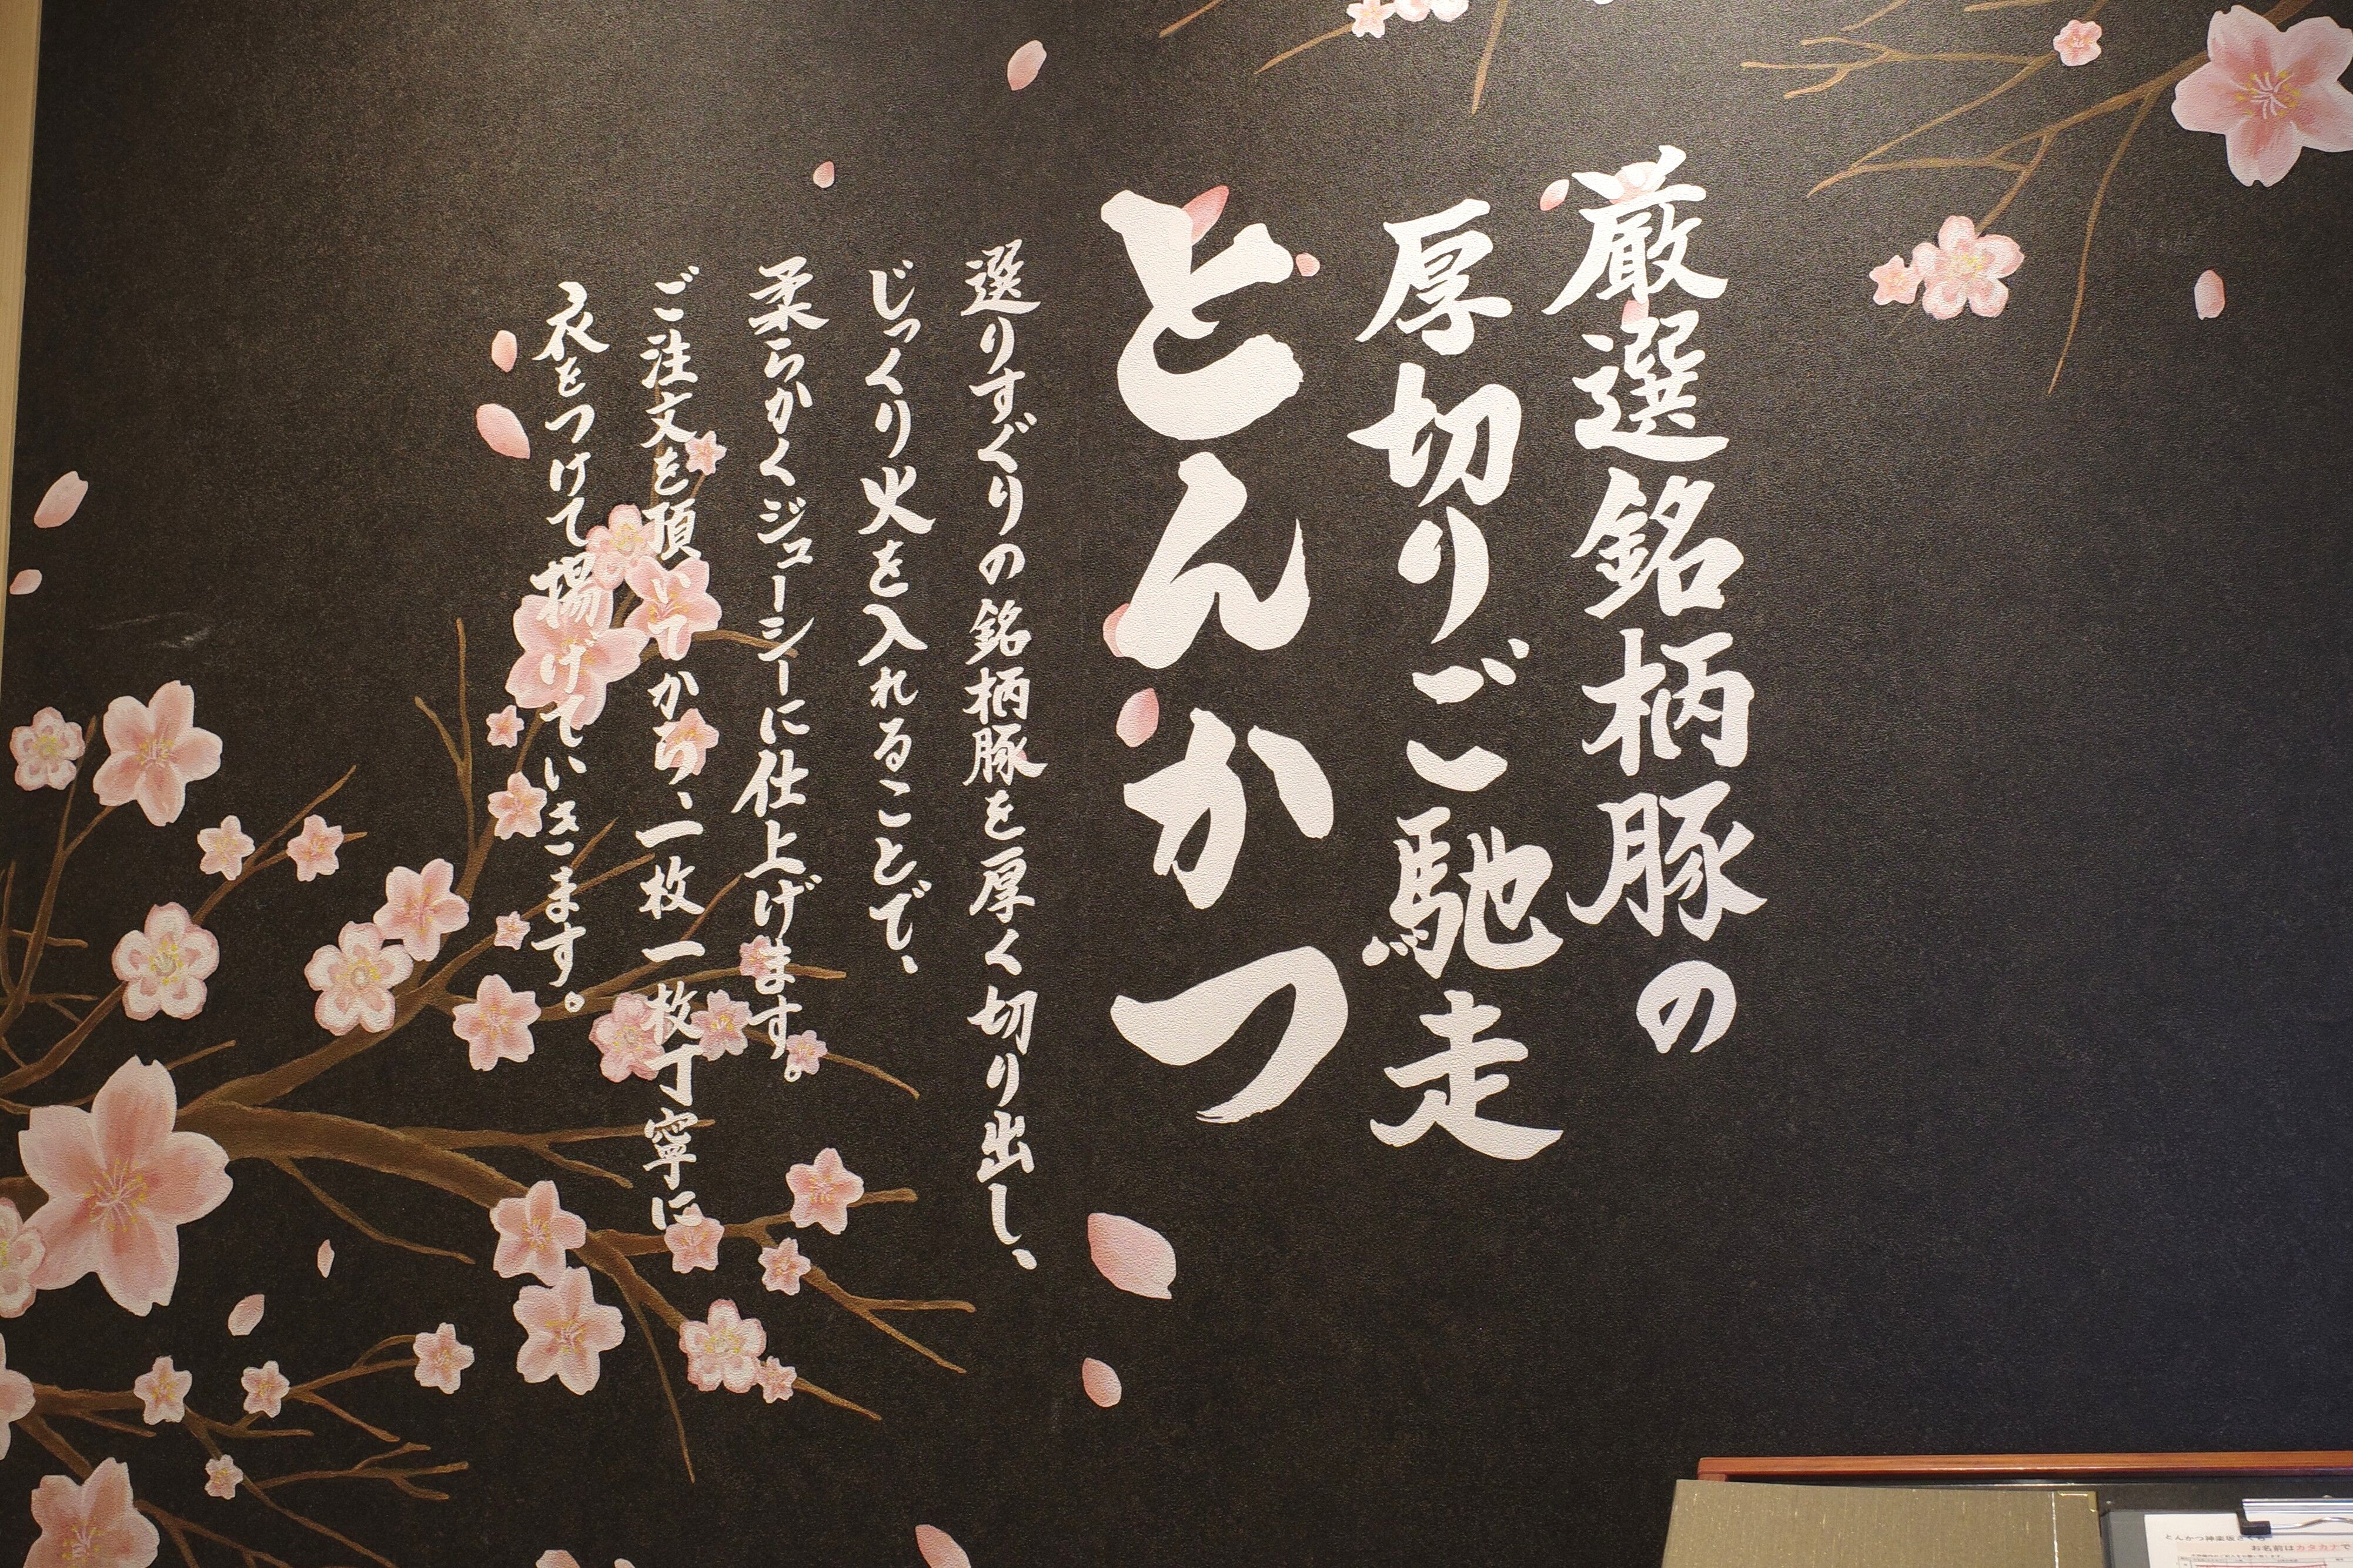 厳選銘柄豚の
厚切りご馳走
とんかつ
選りすぐりの銘柄豚を厚く切り出し、
じっくり火を入れることで、
柔らかくジューシーに仕上げます。
ご注文を頂いてから、一枚一枚丁寧に
衣をつけて揚げていきます。
お名前はカタカナで